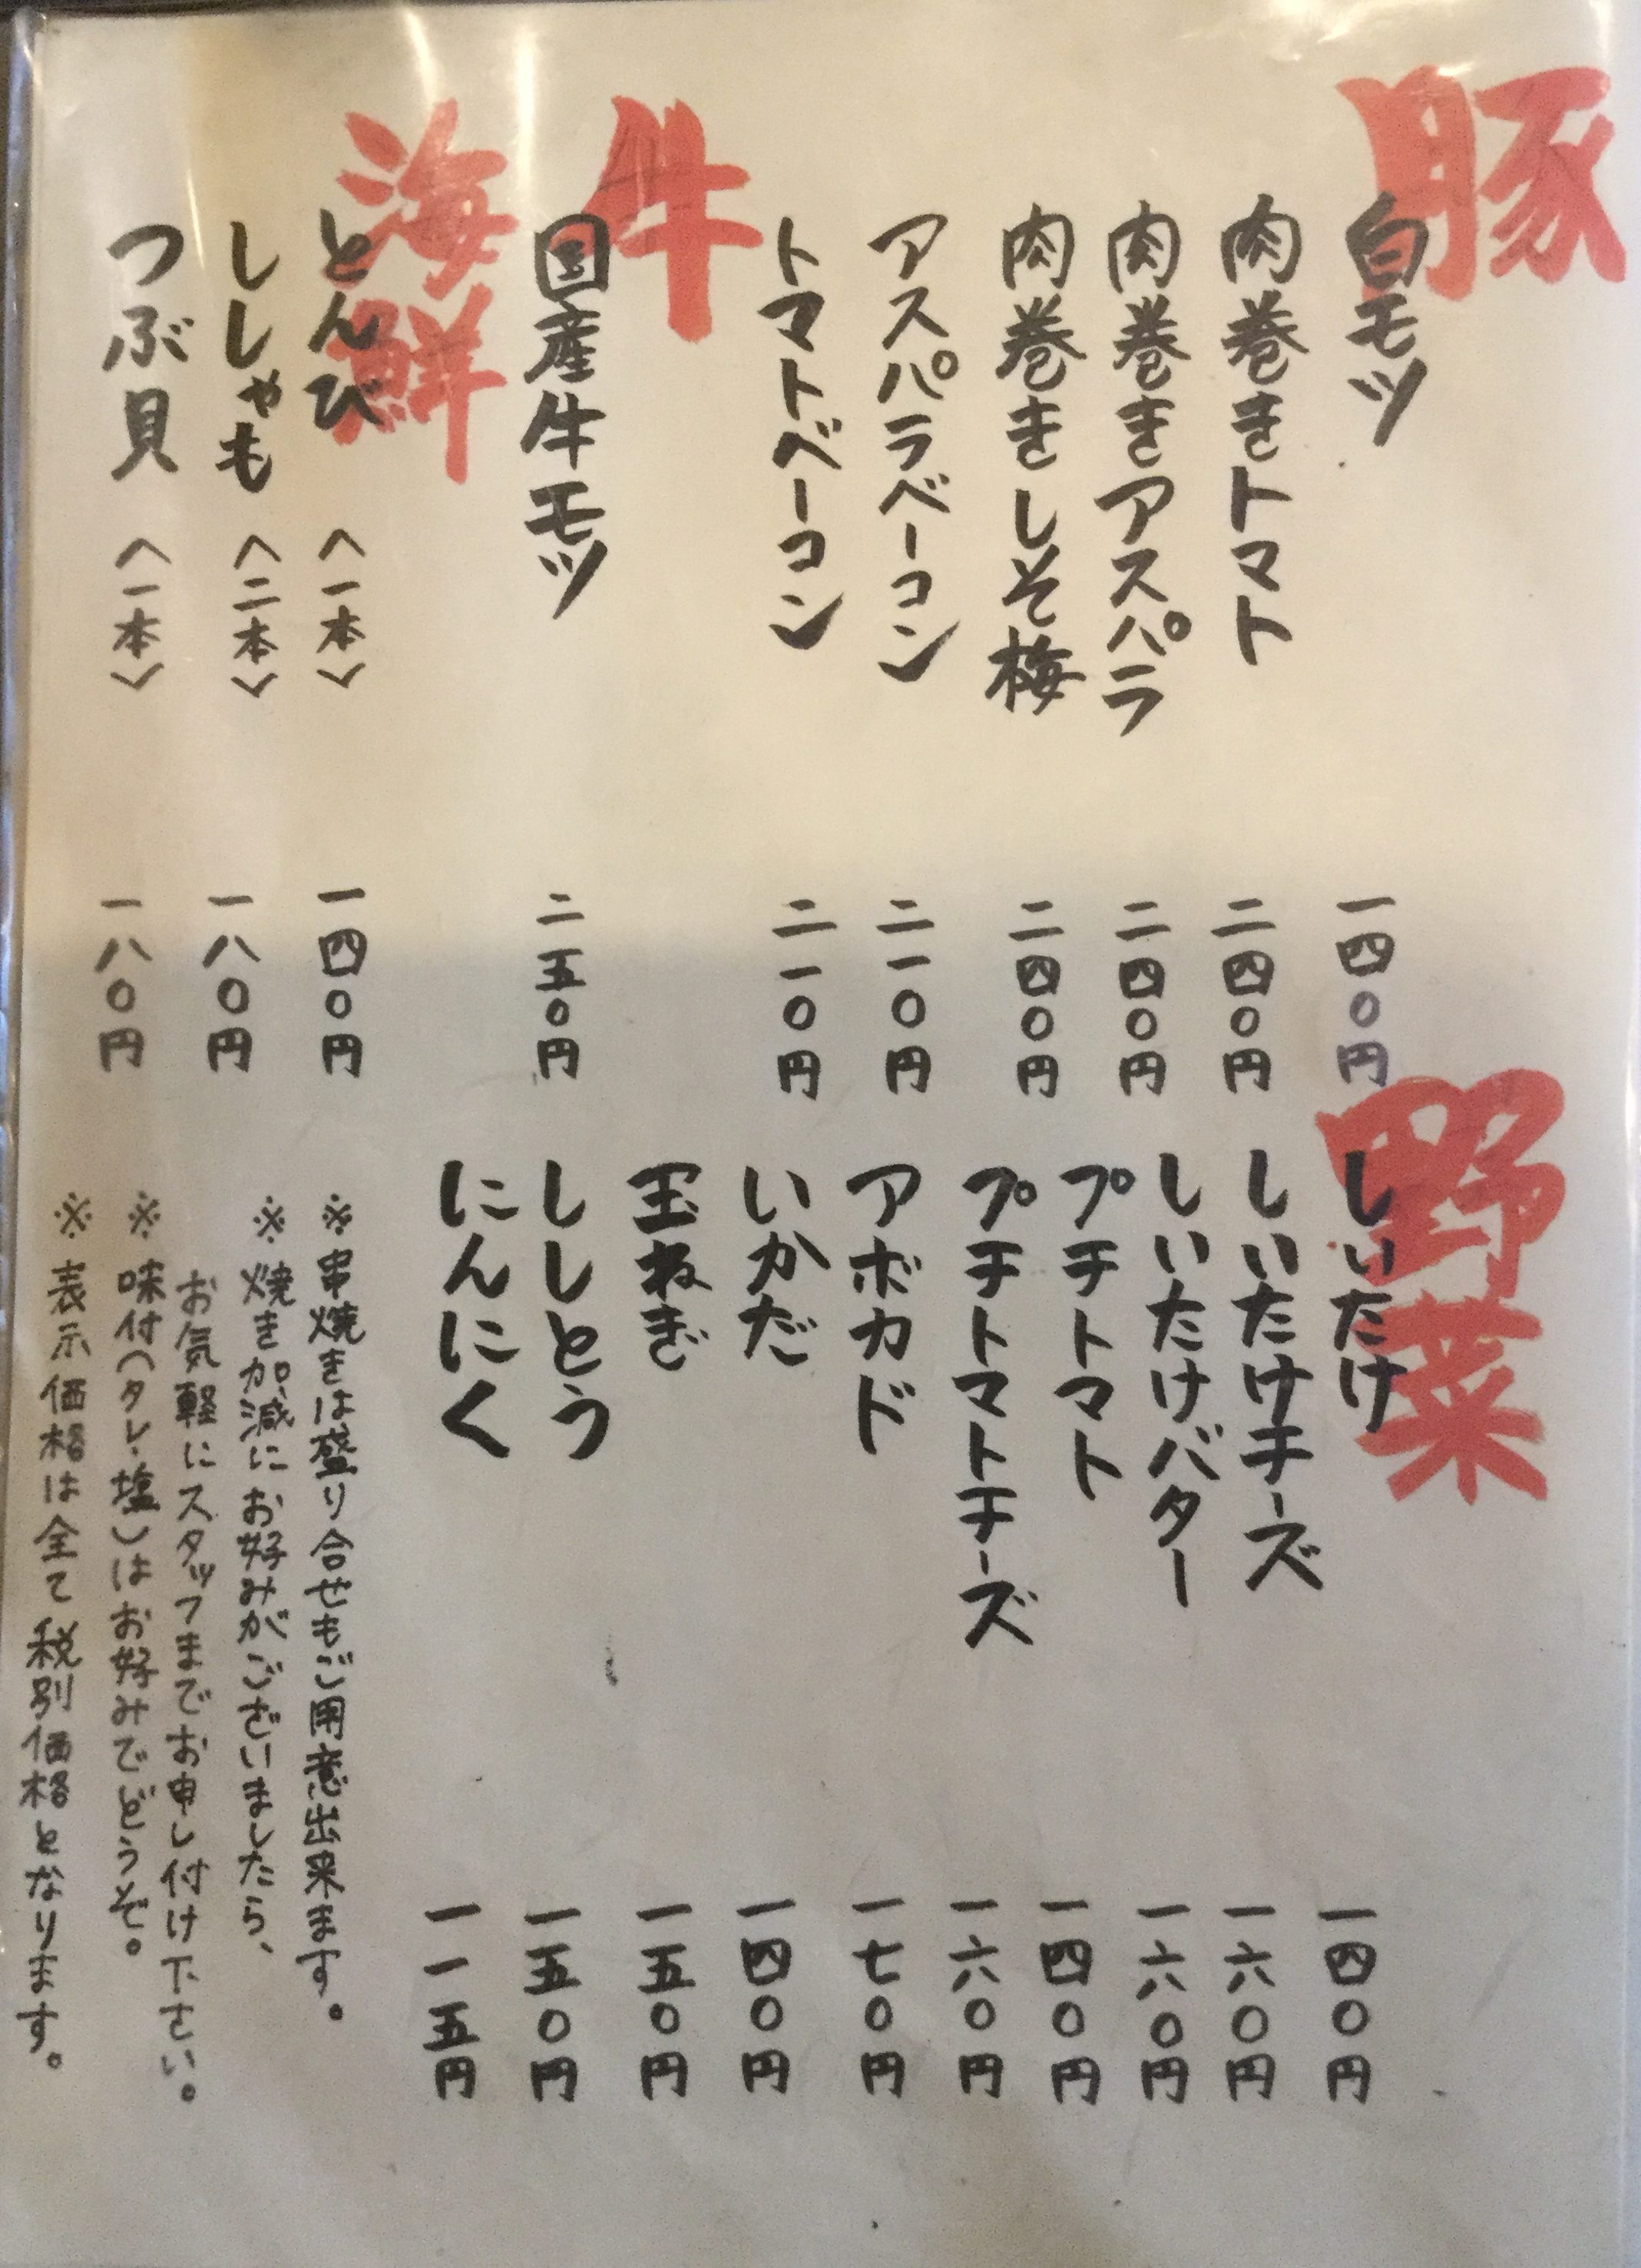 豚
白モツ 一四〇円
肉巻きトマト 二四〇円
肉巻きアスパラ 二四〇円
肉巻きしそ梅 二四〇円
アスパラベーコン 二一〇円
トマトベーコン 二一〇円
牛
国産牛モツ 二五〇円
海鮮
とんび〈一本〉 一四〇円
ししゃも〈二本〉 一八〇円
つぶ貝〈一本〉 一八〇円
野菜
しいたけ 一四〇円
しいたけチーズ 一六〇円
しいたけバター 一六〇円
プチトマト 一四〇円
プチトマトチーズ 一六〇円
アボカド 一七〇円
いかだ 一四〇円
玉ねぎ 一五〇円
ししとう 一五〇円
にんにく 一一五円
※串焼きは盛り合せもご用意出来ます。
※焼き加減にお好みがございましたら、
お気軽にスタッフまでお申し付け下さい。
※味付(タレ・塩)はお好みでどうぞ。
※表示価格は全て税別価格となります。